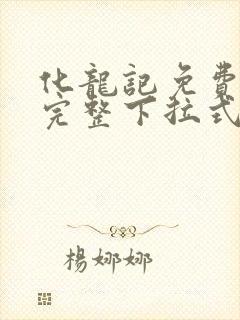 化龍記免費
完整下拉式
楊娜娜